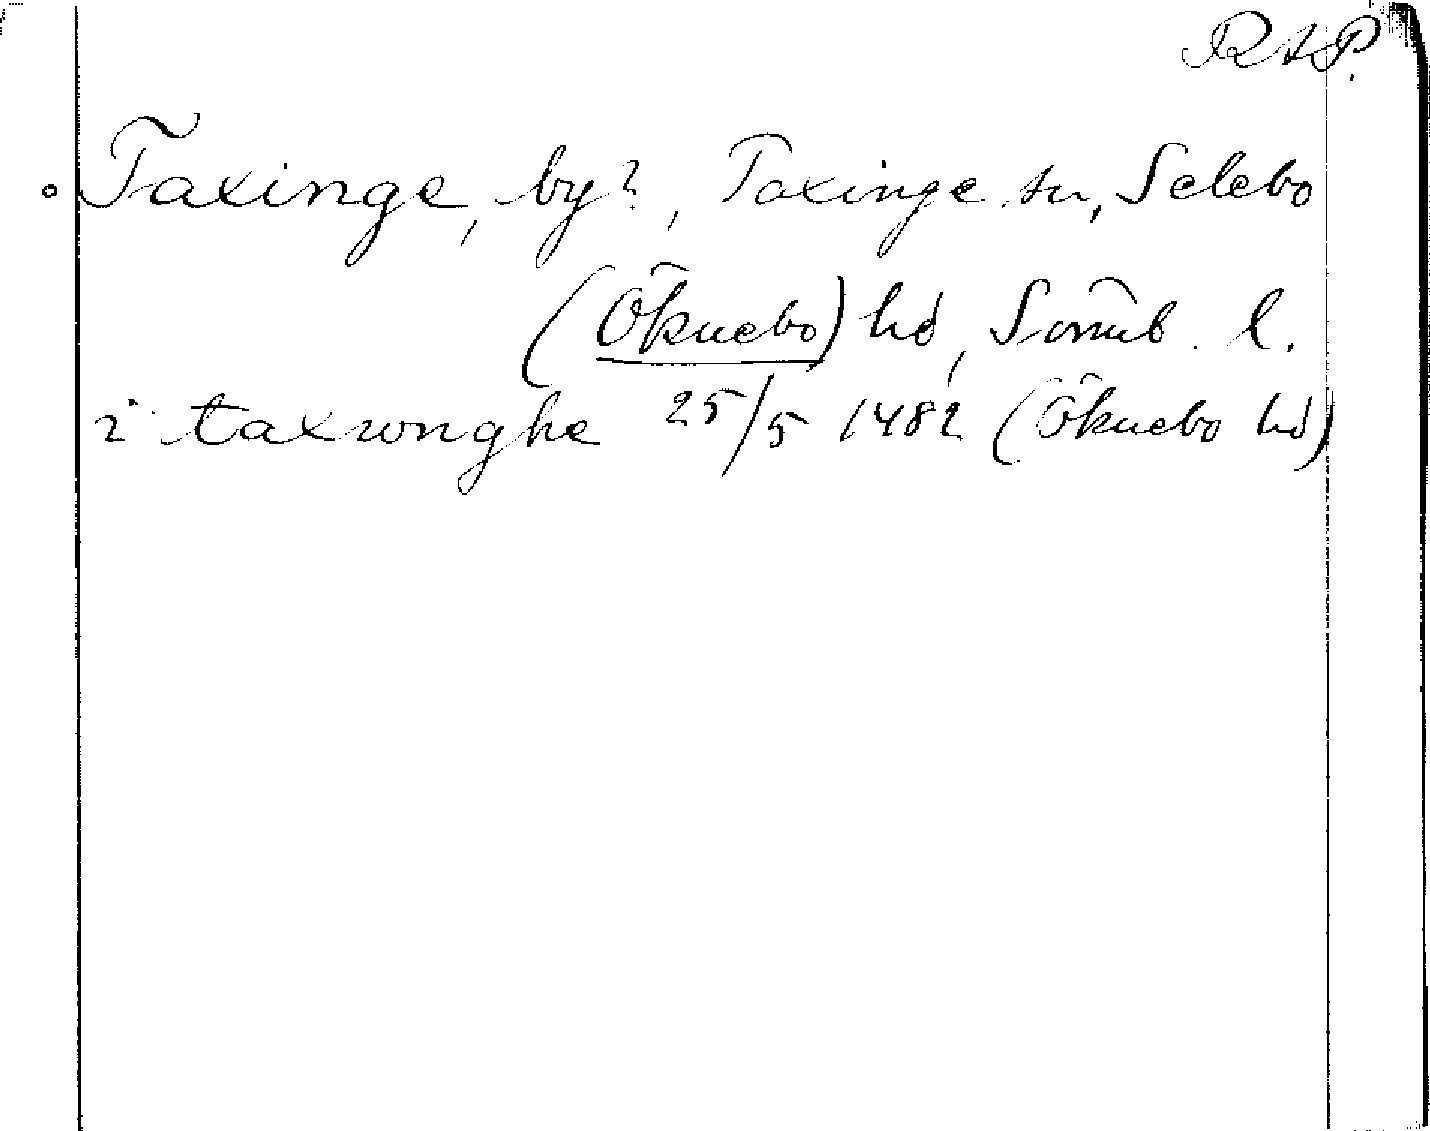 RAP.
Taxinge, by?, Taxinge sn, Selebo
(Öknebo) hd, Sörmb. l.
i taxwnghe 25/5 1482 (Öknebo hd)